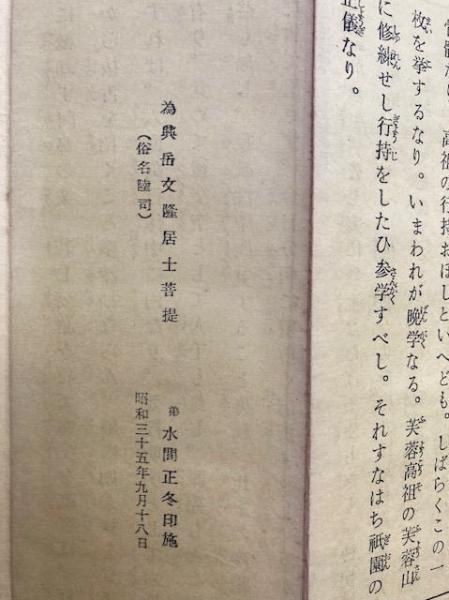 骨髄なり。高祖の行持おほしといへども。しばらくこの一
枚を挙するなり。いまわれが晩学なる。芙蓉高祖の芙蓉山
に修練せし行持をしたひ参学すべし。それすなはち祇園の
正儀なり。
為興岳文隆居士菩提
（俗名陸司）
弟 水間正冬印施
昭和三十五年九月十八日